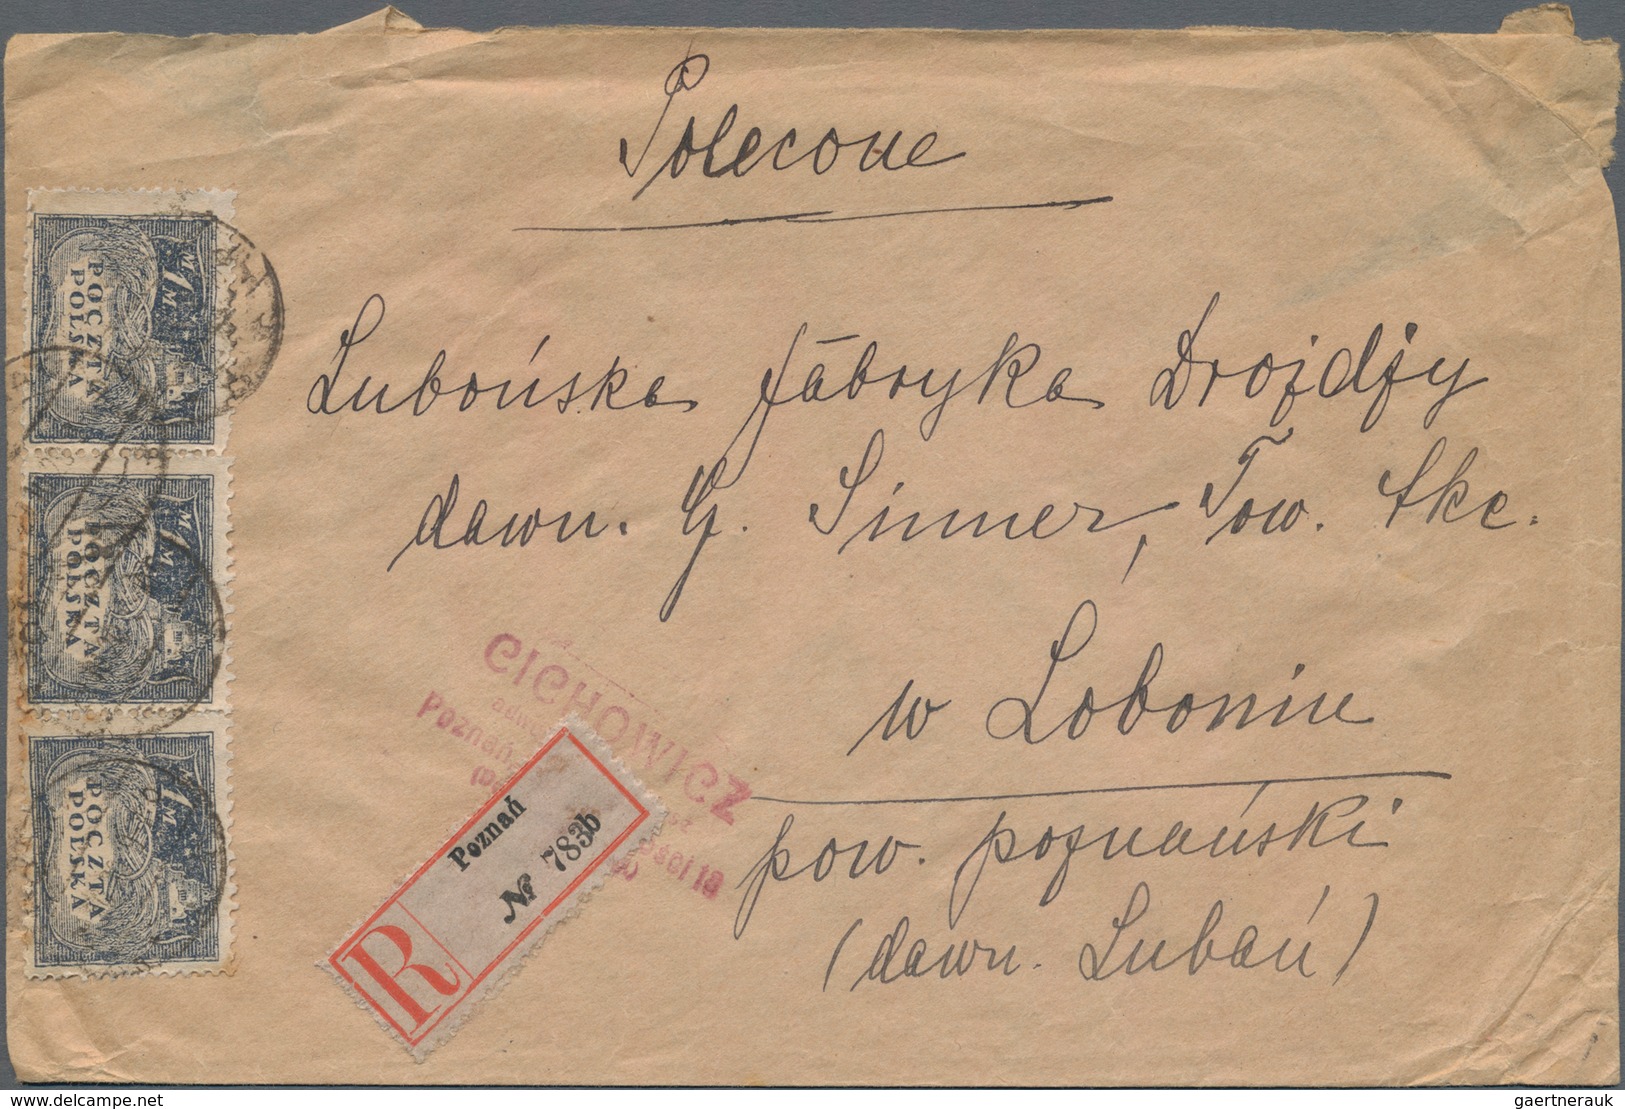 Polecone
Lubońska fabryka Drojdży
dawn. G. Sinner, Tow. Akc.
w Loboniu
pow. poznański
(dawn. Lubań)
M 1 M
POCZTA
POLSKA
M 1 M
POCZTA
POLSKA
M 1 M
POCZTA
POLSKA
CICHOWICZ
Poznań
R
Poznań
№ 783b
www.delcampe.net
gaertnerauk